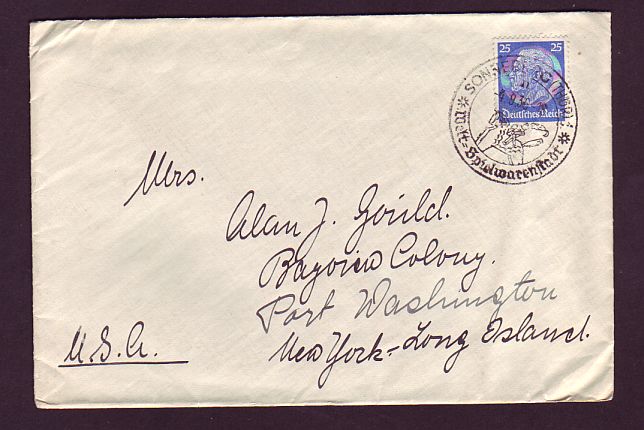 25 25
Deutsches Reich
SONNEBERG (THÜR)
Welt-Spielwarenstadt
Mrs.
Alan J. Gould.
Bayview Colony.
Port Washington
New York-Long Island.
U.S.A.